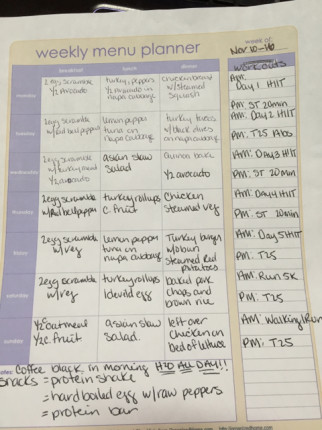 week of
Nov 10-16
weekly menu planner
workouts
breakfast lunch dinner
monday
2egg scramble
1/2 Avocado
turkey, peppers
1/2 Avocado in
napa cabbage
chicken breast
w/steamed
squash
Am:
Day 1 HIIT
PM: ST 20min
tuesday
2egg scramble
w/red bell pepper
lemon pepper
tuna on
napa cabbage
turkey tacos
w/black olives
on napa cabbage
AM: Day 2 HIIT
PM: T25 Abs
wednesday
2egg scramble
w/turkey meat
1/2 avocado
asian slaw
salad
quinoa bake
1/2 avocado
AM: Day 3 HIIT
PM: ST 20min
thursday
2egg scramble
w/Red bell pepper
turkey rollups
c. fruit
Chicken
Steamed veg
AM: DAY 4 HIIT
PM: ST 20min
friday
2egg scramble
w/veg
lemon pepper
tuna on
napa cabbage
Turkey burger
w/o bun
Steamed Red
potatoes
AM: Day 5 HIIT
PM: T25
saturday
2egg scramble
w/veg
turkey rollups
1 deviled egg
baked pork
chops and
brown rice
AM: Run 5K
PM: T25
sunday
1/2c oatmeal
1/2c. fruit
asian slaw
Salad.
left over
Chicken on
bed of lettuce
AM: Walking/Run
PM: T25
notes: Coffee black in morning H2O ALL DAY!!
Snacks = protein shake
= hard boiled egg w/raw peppers
= protein bar